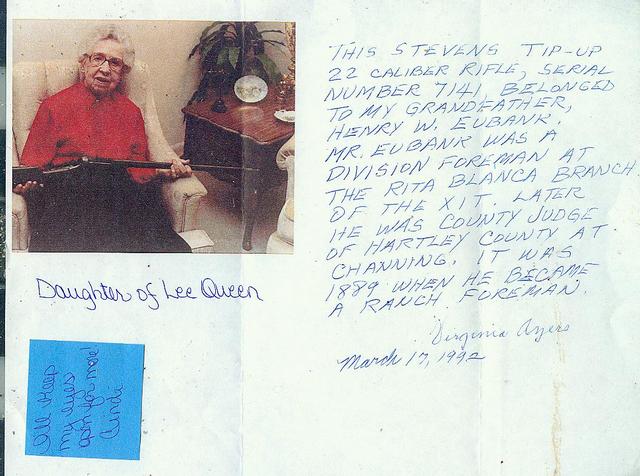 THIS STEVENS TIP-UP
22 CALIBER RIFLE, SERIAL
NUMBER 7141, BELONGED
TO MY GRANDFATHER,
HENRY W. EUBANK.
MR. EUBANK WAS A
DIVISION FOREMAN AT
THE RITA BLANCA BRANCH
OF THE XIT. LATER
HE WAS COUNTY JUDGE
OF HARTLEY COUNTY AT
CHANNING. IT WAS
1889 WHEN HE BECAME
A RANCH FOREMAN.
Virginia Ayers
March 17, 1992
Daughter of Lee Queen
I'll keep
my eyes
open for more!
Cindi